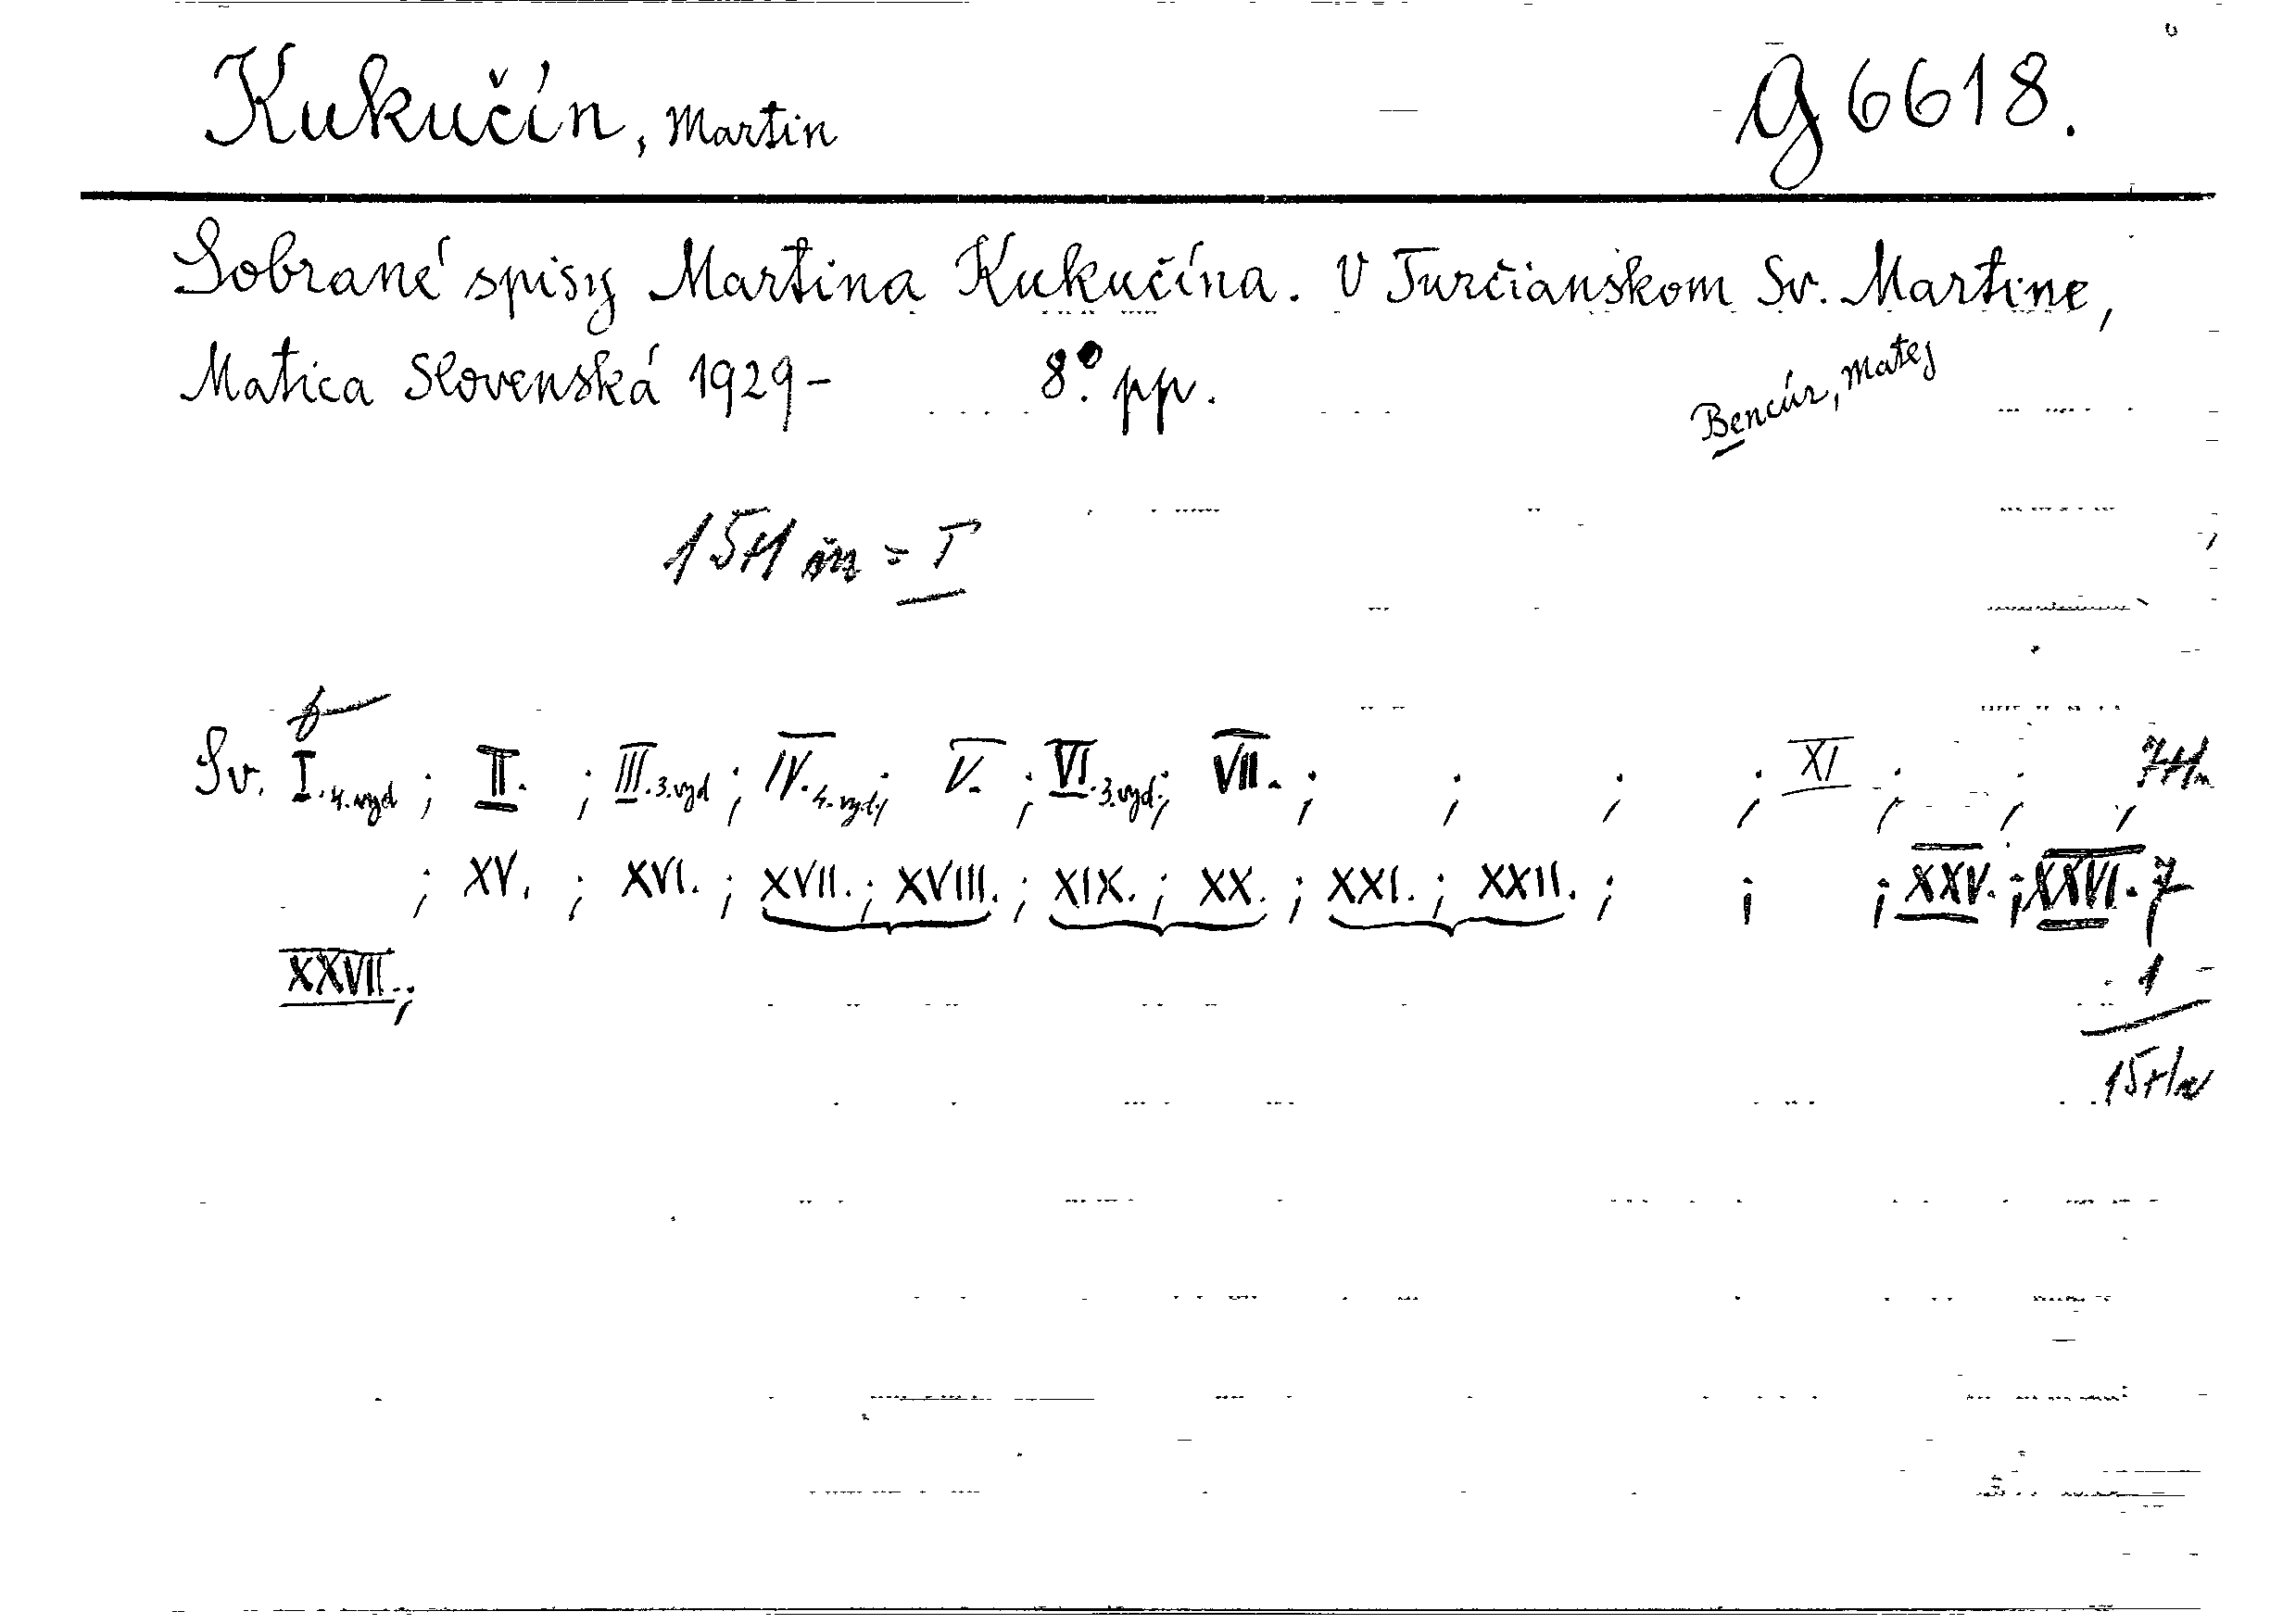 Kukučín, Martin G 6618.
Sobrané spisy Martina Kukučína. V Turčianskom Sv. Martine,
Matica Slovenská 1929- 8°. pp. Bencúr, Matej
Sv. I. 4. vyd ; II. ; III. 3. vyd ; IV. 4. vyd. ; V. ; VI. 3. vyd. ; VII. ; ; ; ; XI ; ; ;
; XV. ; XVI. ; XVII. ; XVIII. ; XIX. ; XX. ; XXI. ; XXII. ; ; ; XXV. ; XXVI. 7
XXVII. ; 1